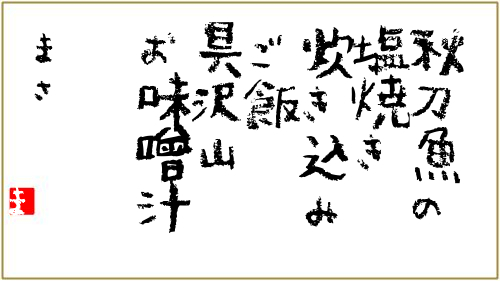 秋刀魚の
塩焼き
炊き込み
ご飯
具沢山
お味噌汁
まさ
ま